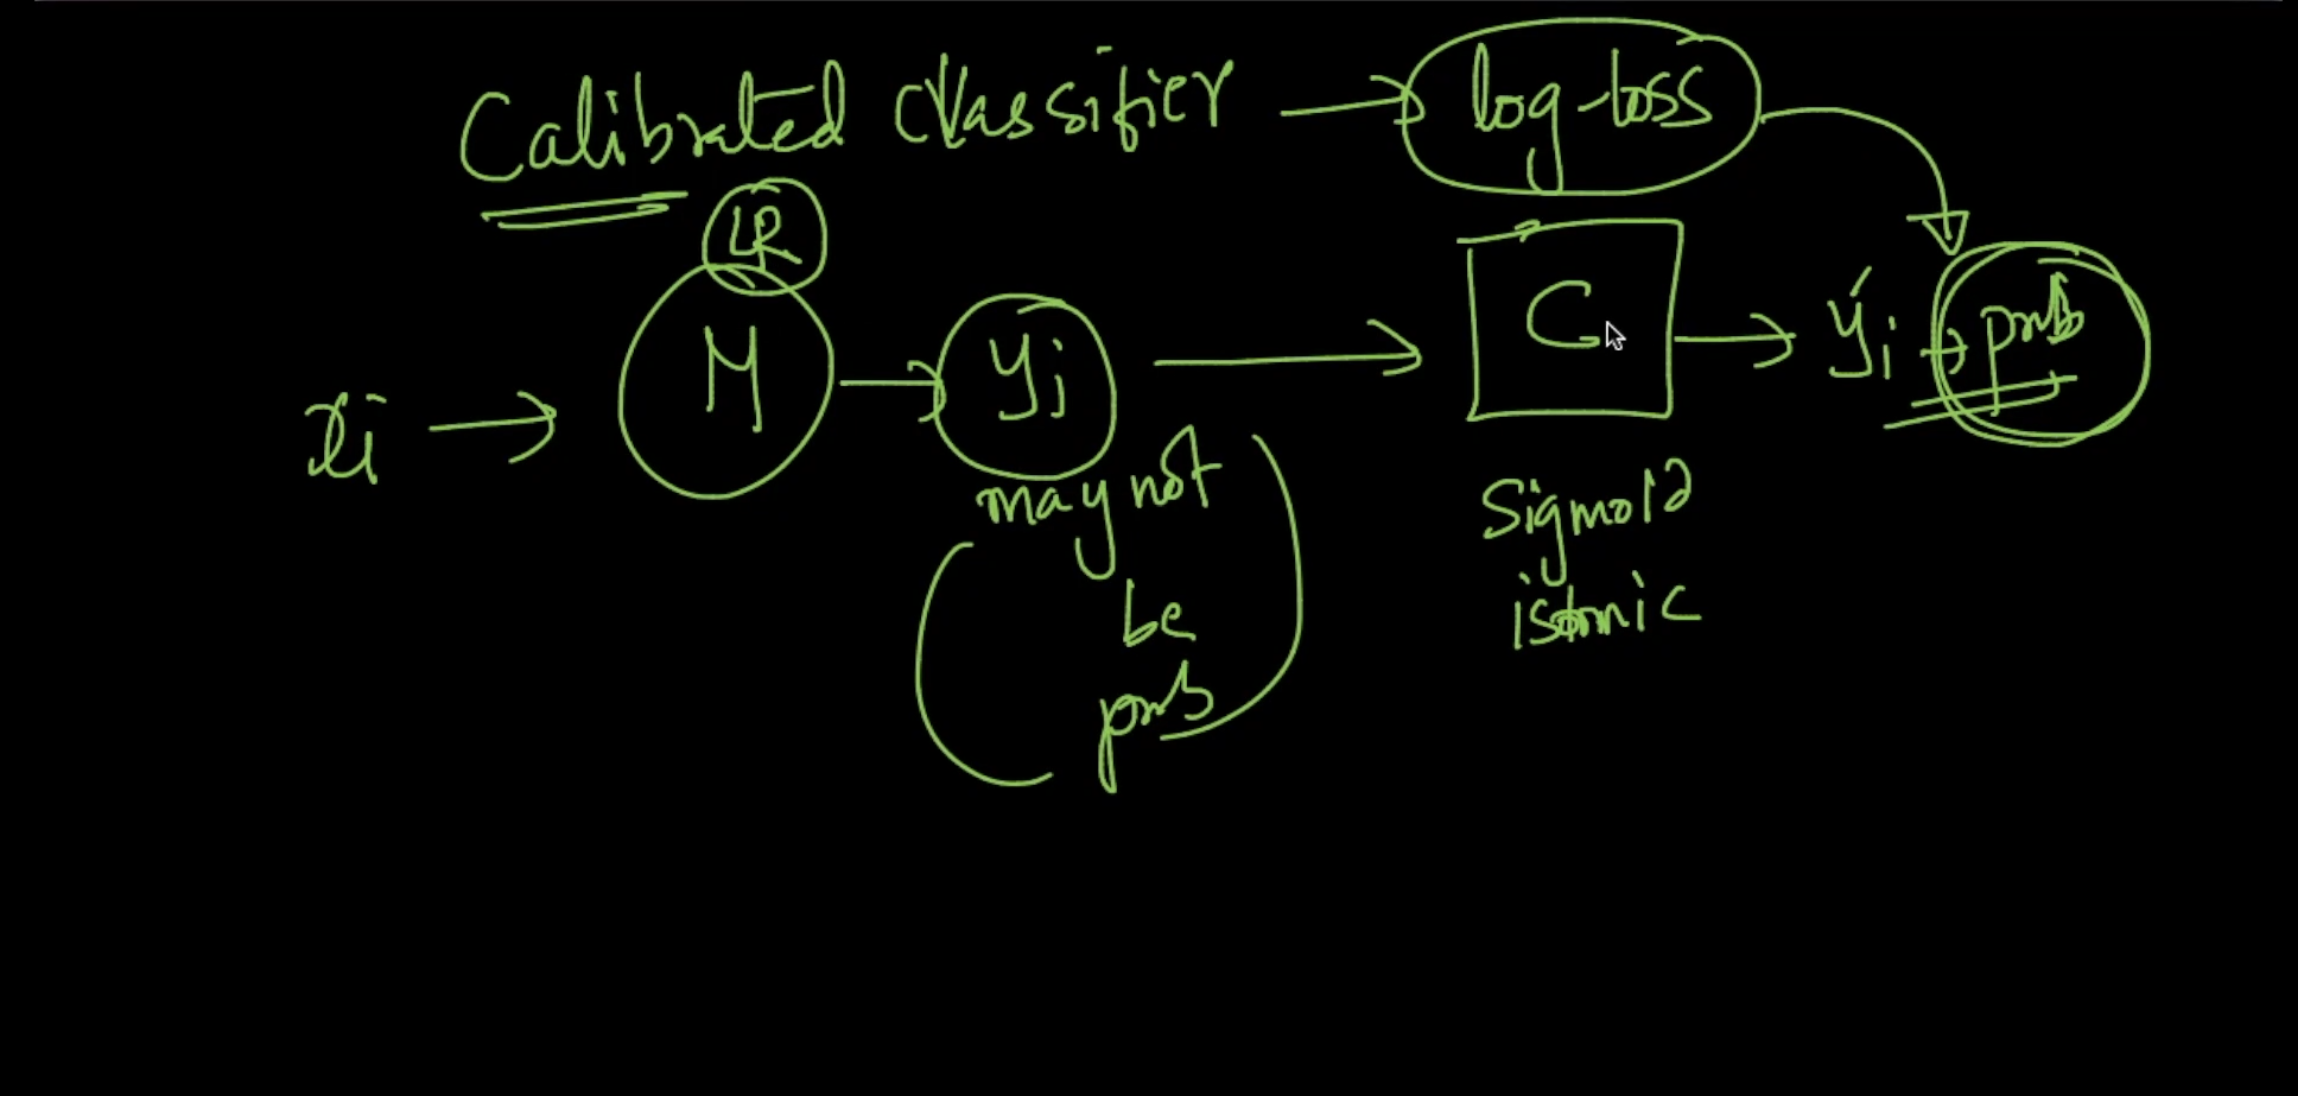 Calibrated classifier → log-loss
LR
xi → M → yi → C → y'i → prob
may not
be
prob
Sigmoid
isotonic